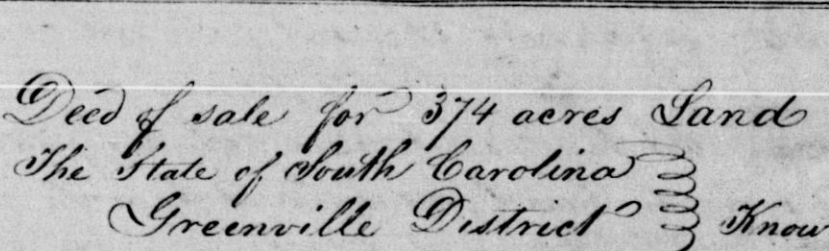 Deed of sale for 374 acres Land
The State of South Carolina
Greenville District } Know